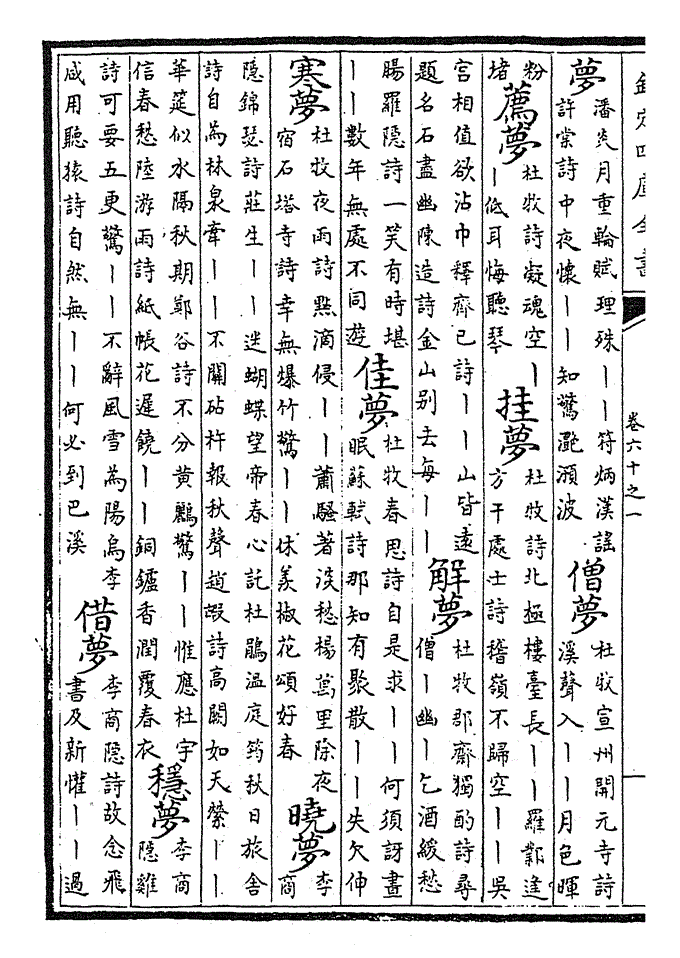 欽定四庫全書
卷六十之一
一
夢
潘炎月重輪賦理殊丨丨符炳漢謠
許棠詩中夜懷丨丨知驚灔澦波
僧夢
杜牧宣州開元寺詩
溪聲入丨丨月色暉
粉
堵
薦夢
杜牧詩凝魂空丨
丨低耳悔聽琴
挂夢
杜牧詩北極樓臺長丨丨羅鄴逢
方干處士詩稽嶺不歸空丨丨吳
宮相值欲沾巾釋齊己詩丨丨山皆遠
題名石盡幽陳造詩金山别去每丨丨
解夢
杜牧郡齋獨酌詩尋
僧丨幽丨乞酒緩愁
腸羅隱詩一笑有時堪
丨丨數年無處不同遊
佳夢
杜牧春思詩自是求丨丨何須訝晝
眠蘇軾詩那知有聚散丨丨失欠伸
寒夢
杜牧夜雨詩點滴侵丨丨蕭騷著淡愁楊萬里除夜
宿石塔寺詩幸無爆竹驚丨丨休羨椒花頌好春
曉夢
李
商
隱錦瑟詩莊生丨丨迷蝴蝶望帝春心託杜鵑温庭筠秋日旅舍
詩自為林泉牽丨丨不關砧杵報秋聲趙嘏詩高闕如天縈丨丨
華筵似水隔秋期鄭谷詩不分黃鸝驚丨丨惟應杜宇
信春愁陸游雨詩紙帳花遲饒丨丨銅鑪香潤覆春衣
穩夢
李商
隱雞
詩可要五更驚丨丨不辭風雪為陽烏李
咸用聽猿詩自然無丨丨何必到巴溪
借夢
李商隱詩故念飛
書及新懽丨丨過